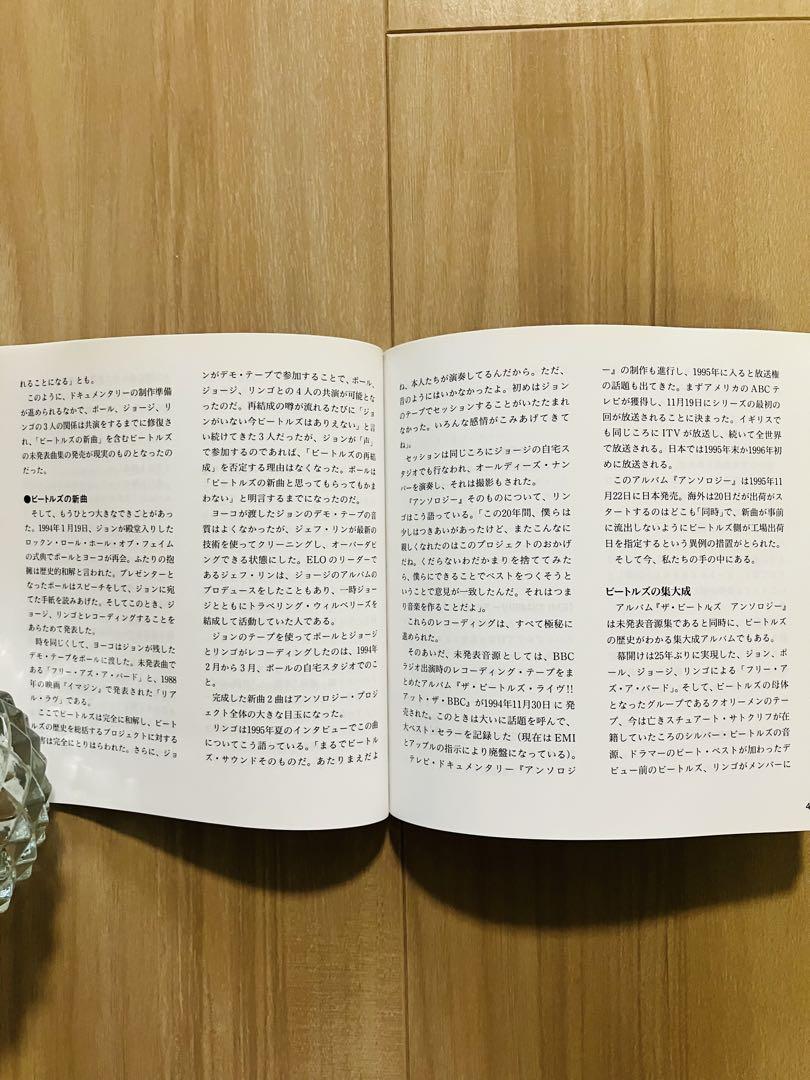 れることになる」とも。
このように、ドキュメンタリーの制作準備
が進められるなかで、ポール、ジョージ、リ
ンゴの3人の関係は共演をするまでに修復さ
れ、「ビートルズの新曲」を含むビートルズ
の未発表曲集の発売が現実のものとなったの
だった。
●ビートルズの新曲
そして、もうひとつ大きなできごとがあっ
た。1994年1月19日、ジョンが殿堂入りした
ロックン・ロール・ホール・オブ・フェイム
の式典でポールとヨーコが再会。ふたりの抱
擁は歴史的和解と言われた。プレゼンターと
なったポールはスピーチをして、ジョンに宛
てた手紙を読みあげた。そしてこのとき、ジ
ョージ、リンゴとレコーディングすることを
あらためて発表した。
時を同じくして、ヨーコはジョンが残した
デモ・テープをポールに渡した。未発表曲で
ある「フリー・アズ・ア・バード」と、1988
年の映画『イマジン』で発表された「リア
ル・ラヴ」である。
ここでビートルズは完全に和解し、ビート
ルズの歴史を総括するプロジェクトに対する
害は完全にとりはらわれた。さらに、ジョ
ンがデモ・テープで参加することで、ポール、
ジョージ、リンゴとの4人の共演が可能とな
ったのだ。再結成の噂が流れるたびに「ジョ
ンがいない今ビートルズはありえない」と言
い続けてきた3人だったが、ジョンが「声」
で参加するのであれば、「ビートルズの再結
成」を否定する理由はなくなった。ポールは
「ビートルズの新曲と思ってもらってもかま
わない」と明言するまでになったのだ。
ヨーコが渡したジョンのデモ・テープの音
質はよくなかったが、ジェフ・リンが最新の
技術を使ってクリーニングし、オーバーダビ
ングできる状態にした。ELOのリーダーで
あるジェフ・リンは、ジョージのアルバムの
プロデュースをしたこともあり、一時ジョー
ジとともにトラベリング・ウィルベリーズを
結成して活動していた人である。
ジョンのテープを使ってポールとジョージ
とリンゴがレコーディングしたのは、1994年
2月から3月、ポールの自宅スタジオでのこ
と。
完成した新曲2曲はアンソロジー・プロジ
ェクト全体の大きな目玉になった。
リンゴは1995年夏のインタビューでこの曲
についてこう語っている。「まるでビートル
ズ・サウンドそのものだ。あたりまえだよ
ね、本人たちが演奏してるんだから。ただ、
昔のようにはいかなかったよ。初めはジョン
のテープでセッションすることがいたたまれ
なかった。いろんな感情がこみあげてきて
ね」。
セッションは同じころにジョージの自宅ス
タジオでも行なわれ、オールディーズ・ナン
バーを演奏し、それは撮影もされた。
『アンソロジー』そのものについて、リン
ゴはこう語っている。「この20年間、僕らは
少しはつきあいがあったけど、またこんなに
親しくなれたのはこのプロジェクトのおかげ
だね。くだらないわだかまりを捨ててみた
ら、僕らにできることでベストをつくそうと
いうことで意見が一致したんだ。それはつま
り音楽を作ることだよ」。
これらのレコーディングは、すべて極秘に
進められた。
そのあいだ、未発表音源としては、BBC
ラジオ出演時のレコーディング・テープをま
とめたアルバム『ザ・ビートルズ・ライヴ!!
アット・ザ・BBC』が1994年11月30日に発
売された。このときは大いに話題を呼んで、
大ベスト・セラーを記録した（現在はEMI
とアップルの指示により廃盤になっている）。
テレビ・ドキュメンタリー『アンソロジ
ー』の制作も進行し、1995年に入ると放送権
の話題も出てきた。まずアメリカのABCテ
レビが獲得し、11月19日にシリーズの最初の
回が放送されることに決まった。イギリスで
も同じころにITVが放送し、続いて全世界
で放送される。日本では1995年末か1996年初
めに放送される。
このアルバム『アンソロジー』は1995年11
月22日に日本発売。海外は20日だが出荷が
スタートするのはどこも「同時」で、新曲が事前
に流出しないようにビートルズ側が工場出荷
日を指定するという異例の措置がとられた。
そして今、私たちの手の中にある。
ビートルズの集大成
アルバム『ザ・ビートルズ アンソロジー』
は未発表音源集であると同時に、ビートルズ
の歴史がわかる集大成アルバムでもある。
幕開けは25年ぶりに実現した、ジョン、ポ
ール、ジョージ、リンゴによる「フリー・ア
ズ・ア・バード」。そして、ビートルズの母体
となったグループであるクオリーメンのテー
プ、今は亡きスチュアート・サトクリフが在
籍していたころのシルバー・ビートルズの音
源、ドラマーのピート・ベストが加わったデ
ビュー前のビートルズ、リンゴがメンバーに
4